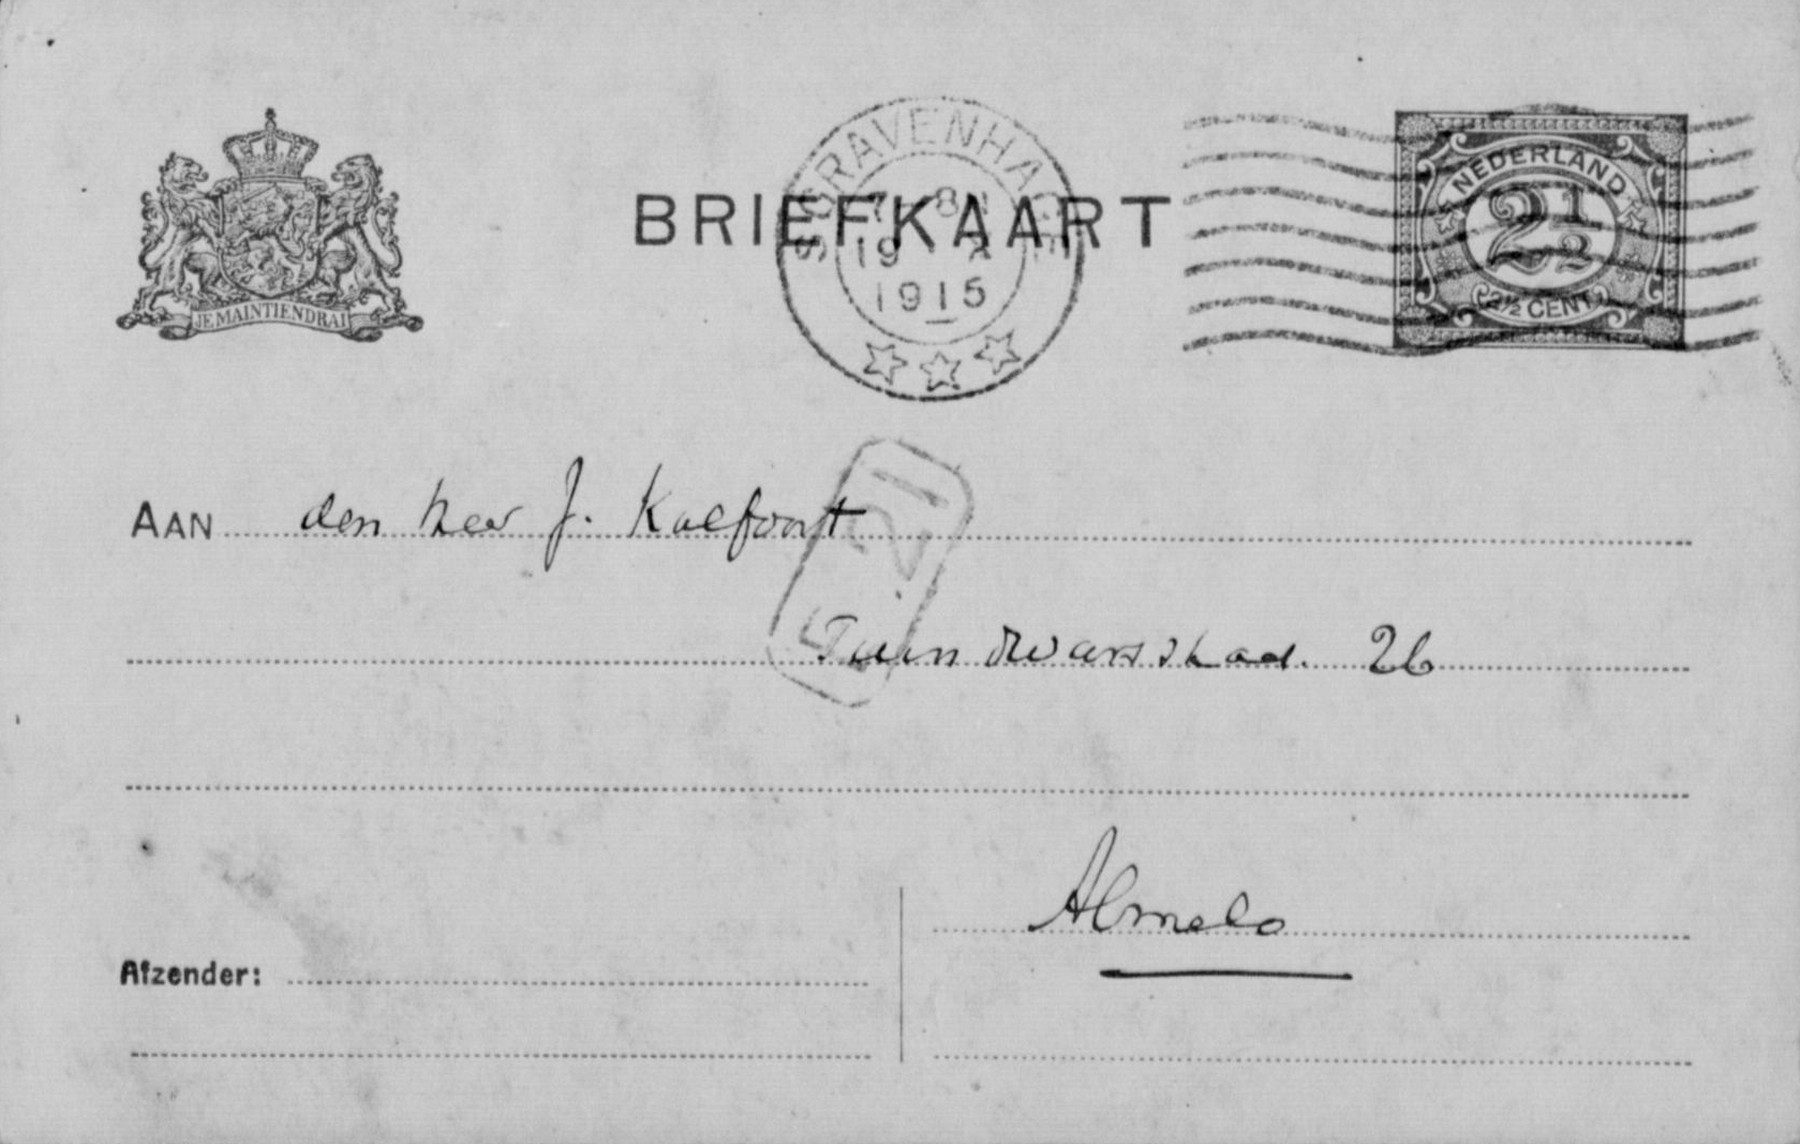 JE MAINTIENDRAI
BRIEFKAART
'S GRAVENHAGE
7 - 8 N
19 X
1915
NEDERLAND
2 1/2
2½ CENT
AAN den heer J. Kalfoort
21
Tuindwarsstraat. 26
Almelo
Afzender: